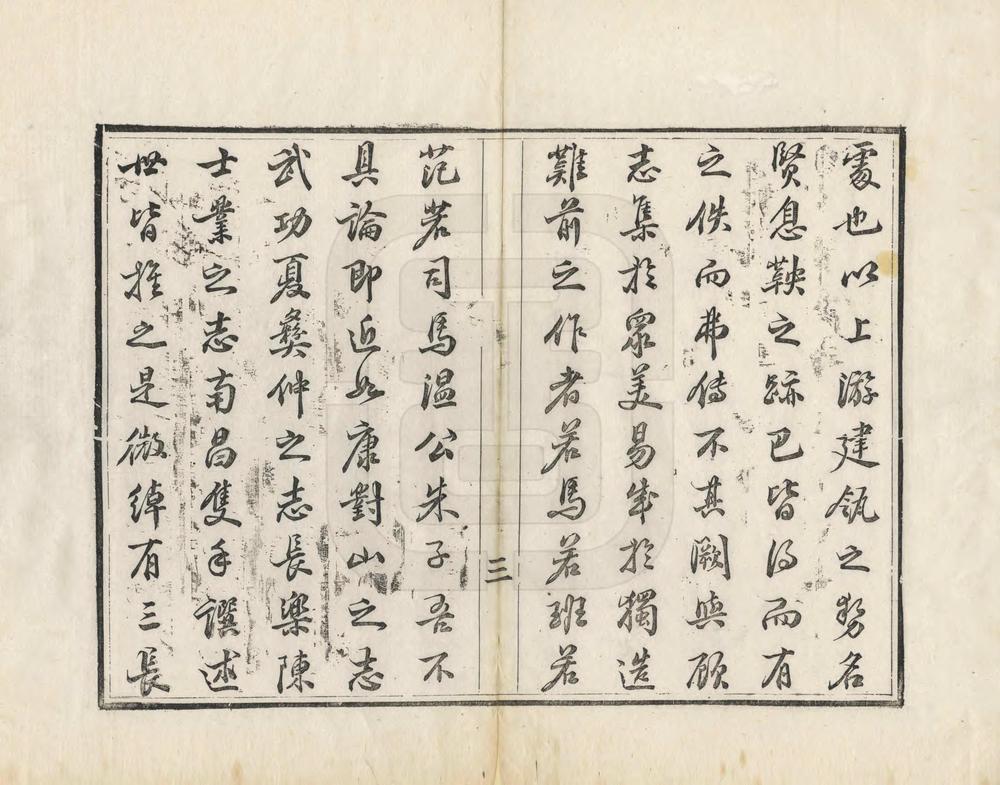 處也以上游建瓴之勢名
賢息鞅之跡巴皆得而有
之佚而弗傳不其闕與顧
志集於眾美易成於獨造
難前之作者若馬若班若
三
范若司馬溫公朱子吾不
具論即近如康對山之志
武功夏彝仲之志長樂陳
士業之志南昌隻手譔述
世皆推之是微綽有三長